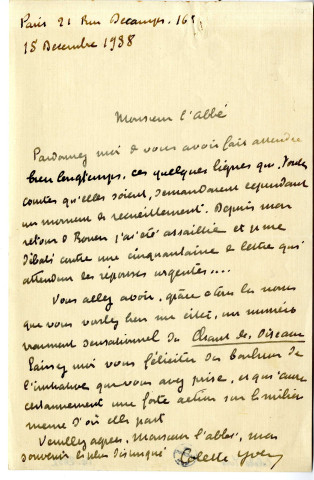 Paris 21 Rue Decamps. 16e
15 Decembre 1938
Monsieur l'Abbé
Pardonnez moi de vous avoir fait attendre
bien longtemps, ces quelques lignes qui, toutes
courtes qu'elles soient, demandaient cependant
un moment de recueillement. Depuis mon
retour de Rouen j'ai été assaillie et je me
débats contre une cinquantaine de lettres qui
attendent des réponses urgentes....
Vous allez avoir, grâce à tous les noms
que vous voulez bien me citer, un numéro
vraiment sensationnel du Chant des Oiseaux
Laissez moi vous féliciter du bonheur de
l'initiative que vous avez prise, et qui aura
certainement une forte action sur le milieu
meme d'où elle part
Veuillez agréer, Monsieur l'abbé, mon
souvenir le plus distingué
Colette Yver